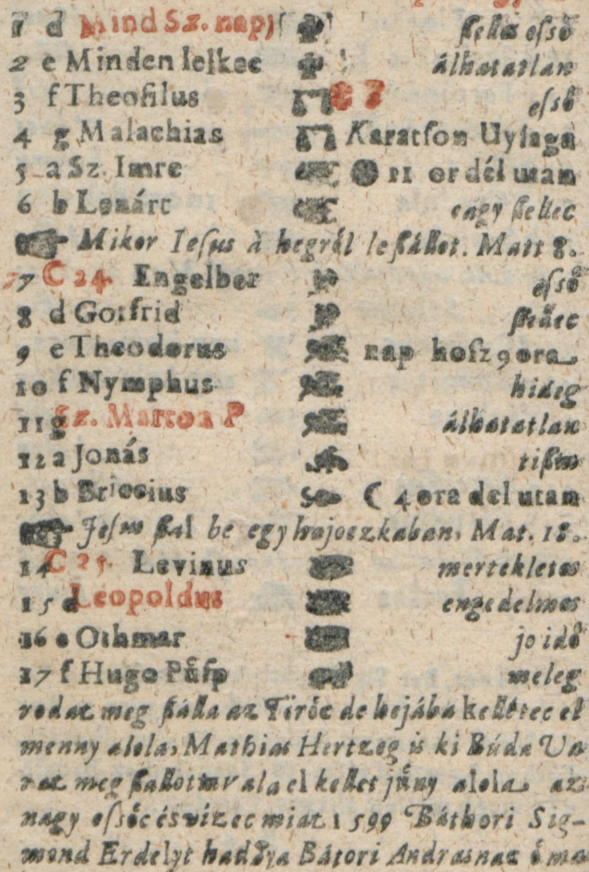 1 d Mind Sz. napj ßelės eſső
2 e Minden lelkec álhatatlan
3 f Theofilus eſső
4 g Malachias Karatſon Uyſaga
5 a Sz. Imre 11 or dél utan
6 b Lenárt eagy ßellec
Mikor Ieſus à hegről le ßállot. Matt 8.
7 C 24. Engelber eſső
8 d Gotfrid ßelec
9 e Theodorus nap hoſz 9 ora
10 f Nymphus hideg
11 g Sz. Marton P álhatatlan
12 a Jonás tißta
13 b Briccius C 4 ora del utan
Jeſus ßal be egy hajoczkaban, Mat. 18.
14 C 25. Levinus mertekletes
15 d Leopoldus engedelmes
16 e Othmar jo idő
17 f Hugo Pűſp meleg
rodat meg ßálla az Tőrőc de hejába kelletec el
menny alola, Mathias Hertzeg is ki Búda Va-
rat meg ßallotta vala el kellet jűny alola az
nagy eſsőc és vizec miat. 1599 Báthori Sig-
mond Erdelyt hadgya Bátori Andrasnac ő ma